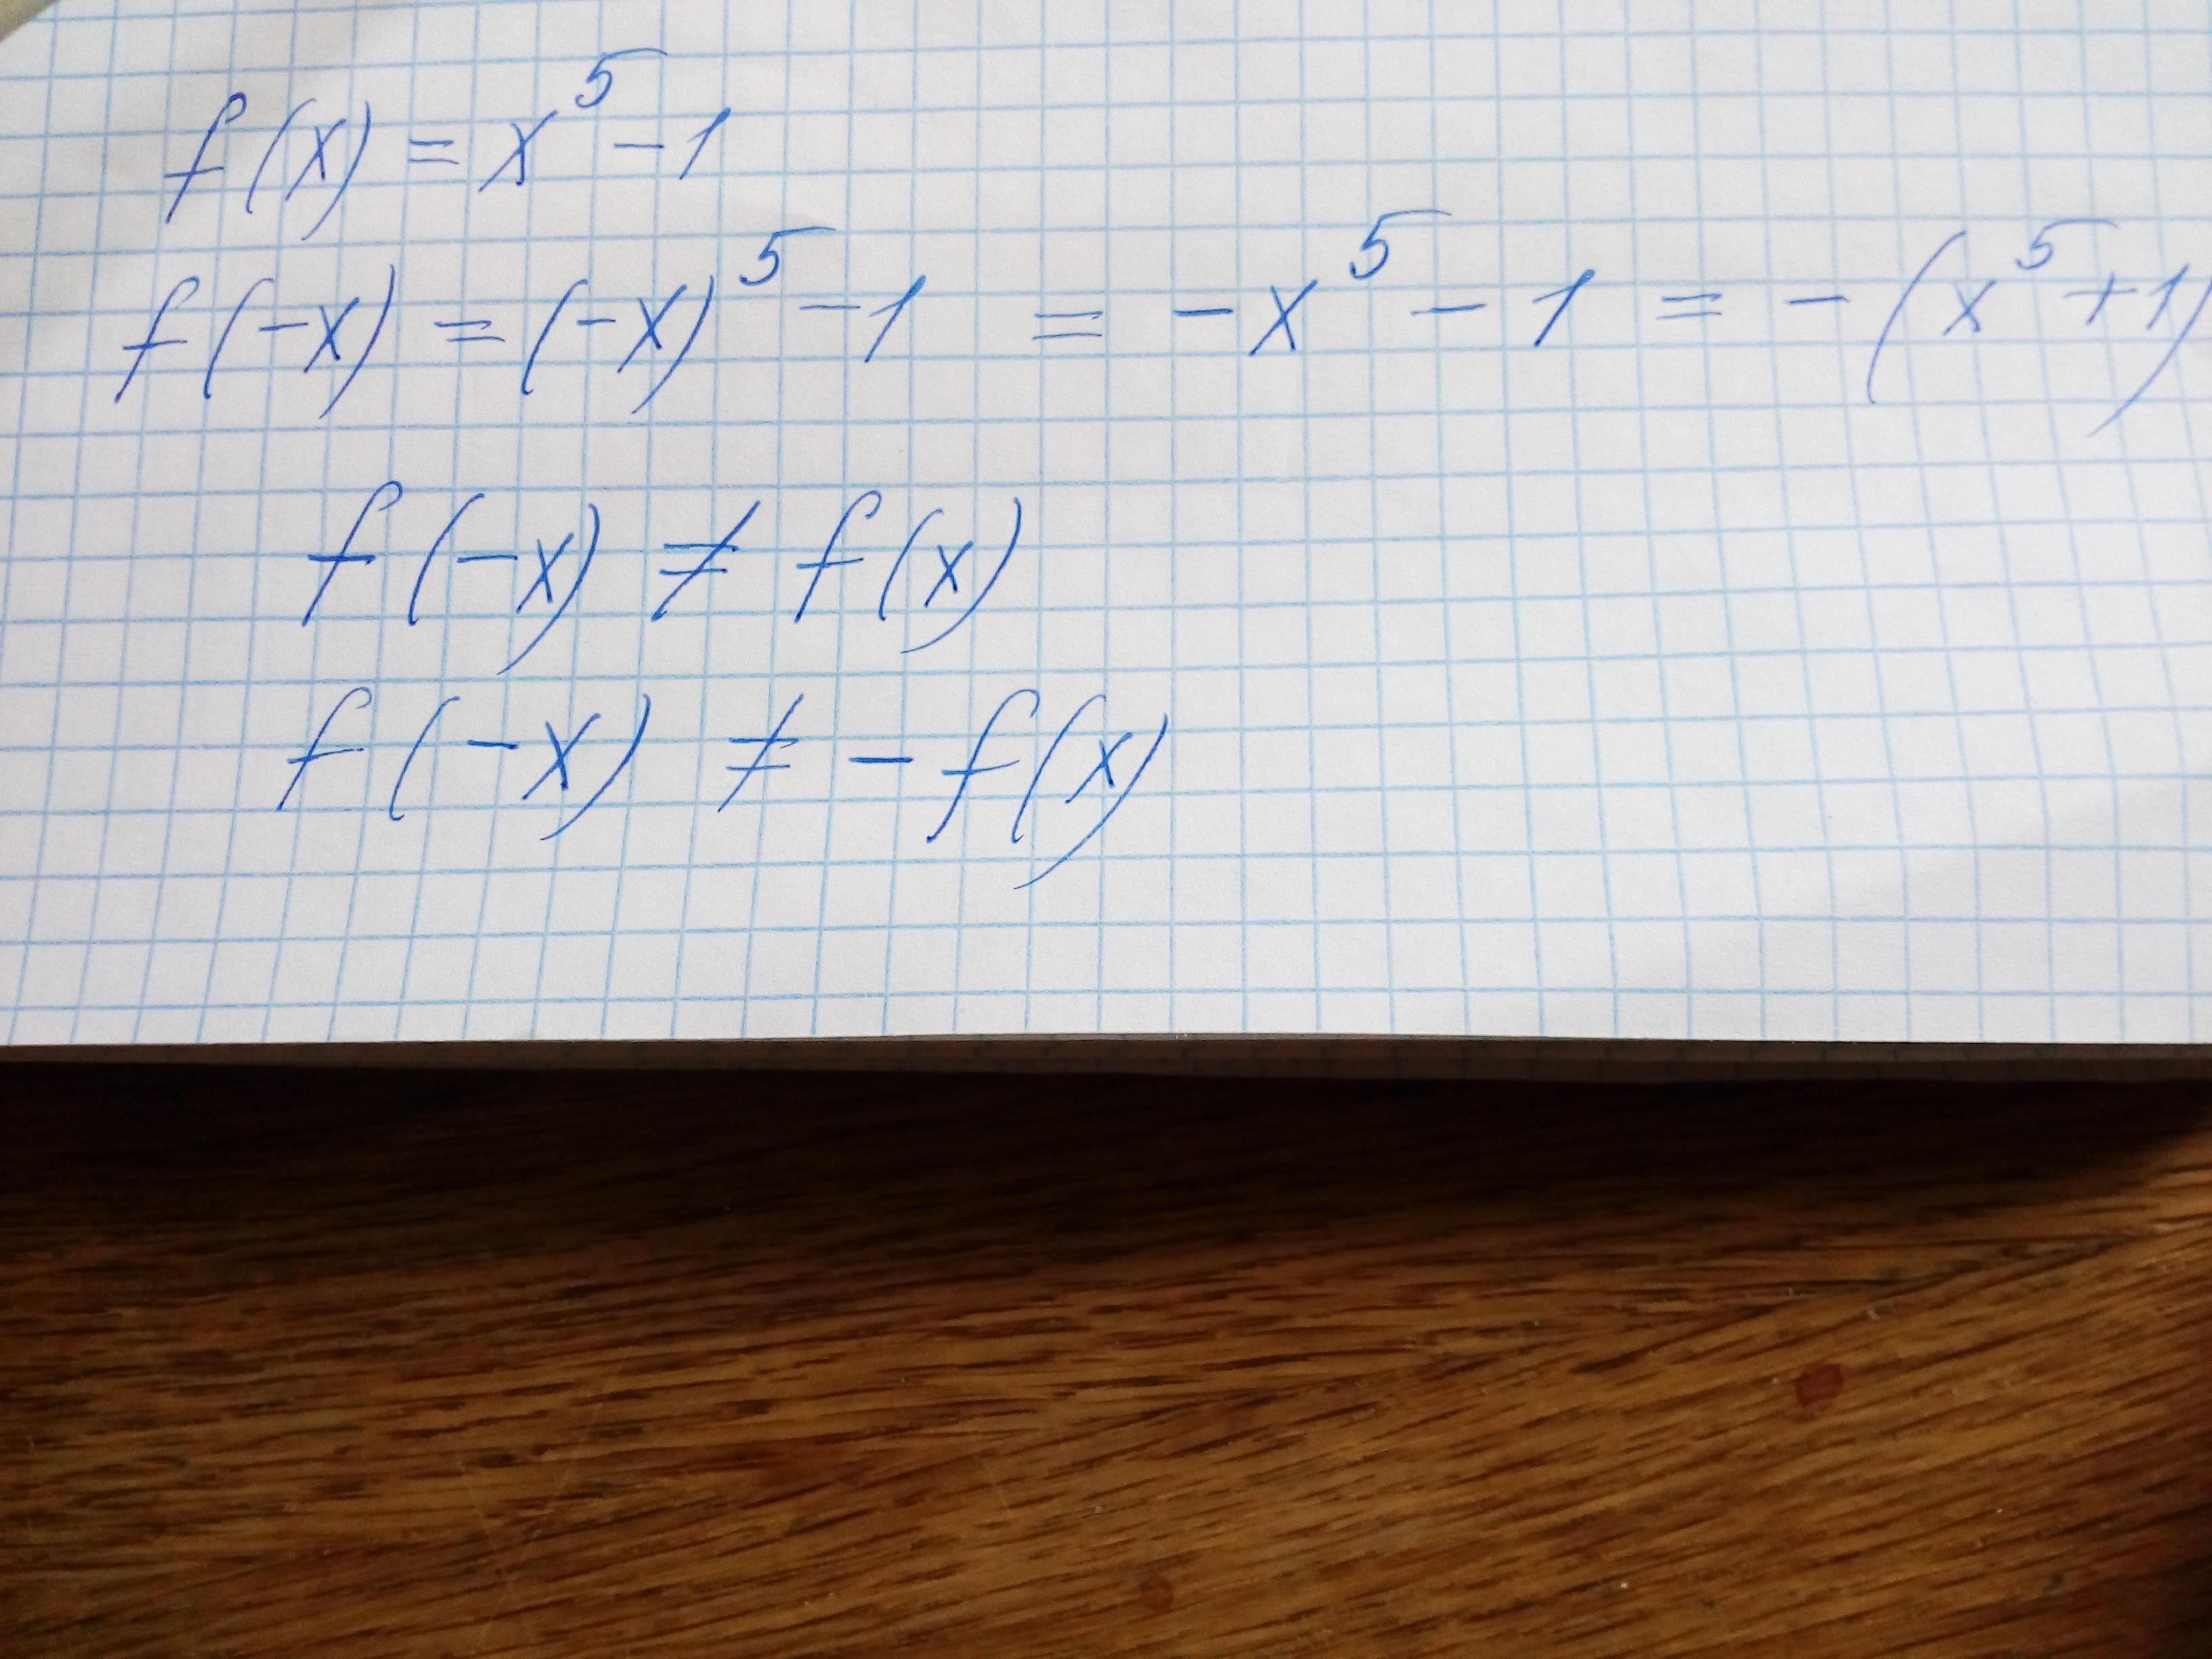 f(x) = x⁵ - 1
f(-x) = (-x)⁵ - 1 = - x⁵ - 1 = - (x⁵ + 1)
f(-x) ≠ f(x)
f(-x) ≠ - f(x)